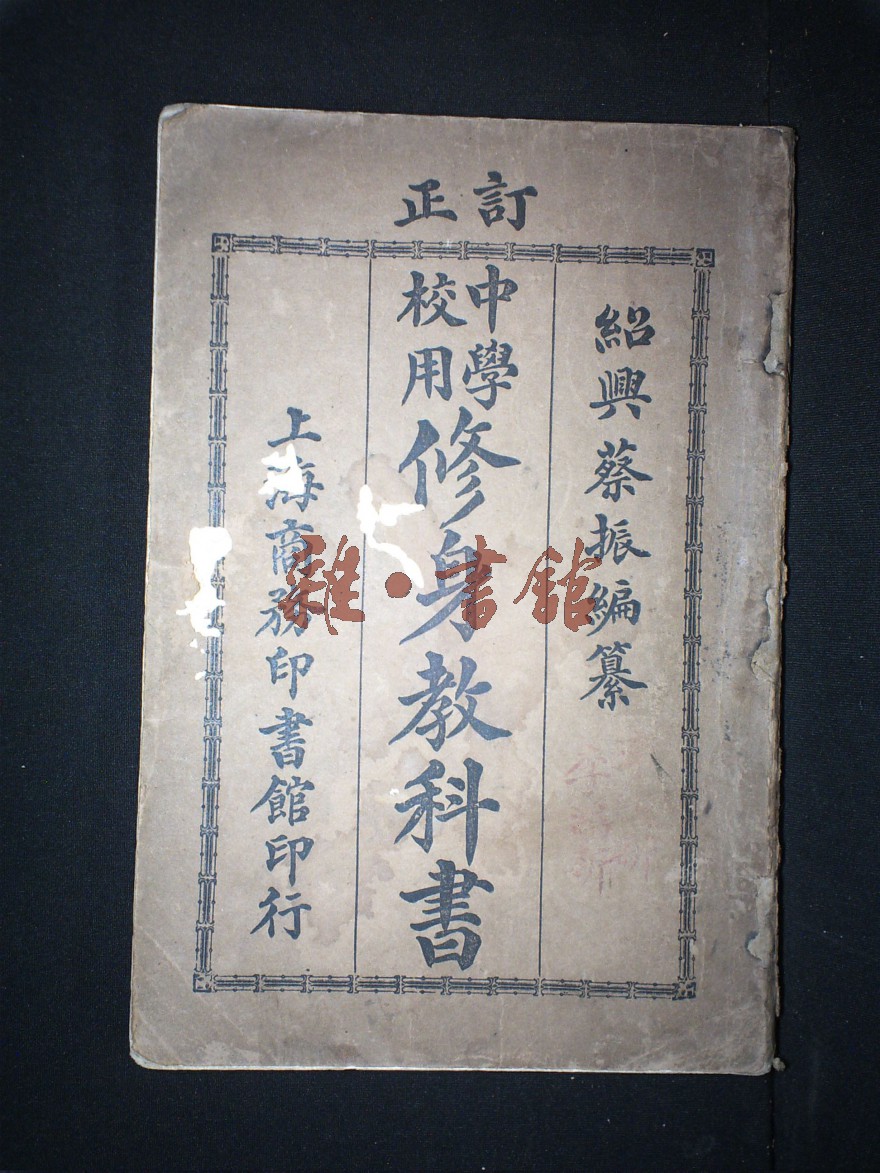 訂正
紹興蔡振編纂
中學校用修身教科書
上海商務印書館印行
雜·書館